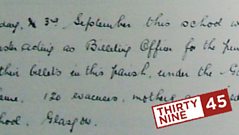 day, 3rd September this school w
ders acting as Billeting Officer for the pur
their billets in this parish, under the G
120 evacuees, mothers a
hool, Glasgow.
THIRTY
NINE
45